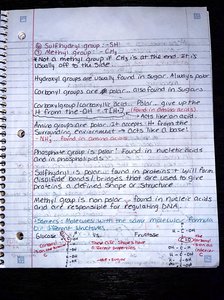 ⑥ Sulfhydryl group: -SH
⑦ Methyl group: -CH₃
*Not a methyl group if CH₃ is at the end. It is
usually off to the side.
Hydroxyl groups are usually found in sugar. Always polar
Carbonyl groups are polar... also found in sugars
polar... give up the
H from the -OH = [H+]
(found in amino acids)
Acts like an acid
Amino groups are polar. It accepts H+ from the
surrounding environment → Acts like a base!
found in amino acids
Phosphate group is polar! Found in nucleic acids
and in phospholipids
Sulfhydryl is polar... found in proteins. It will form
disulfide bonds/bridges that are used to give
proteins a defined shape or structure
Methyl group is non polar... found in nucleic acids
and are responsible for regulating DNA.
Isomers: Molecules with the same molecular formula
but different structures
Glucose vs. Fructose